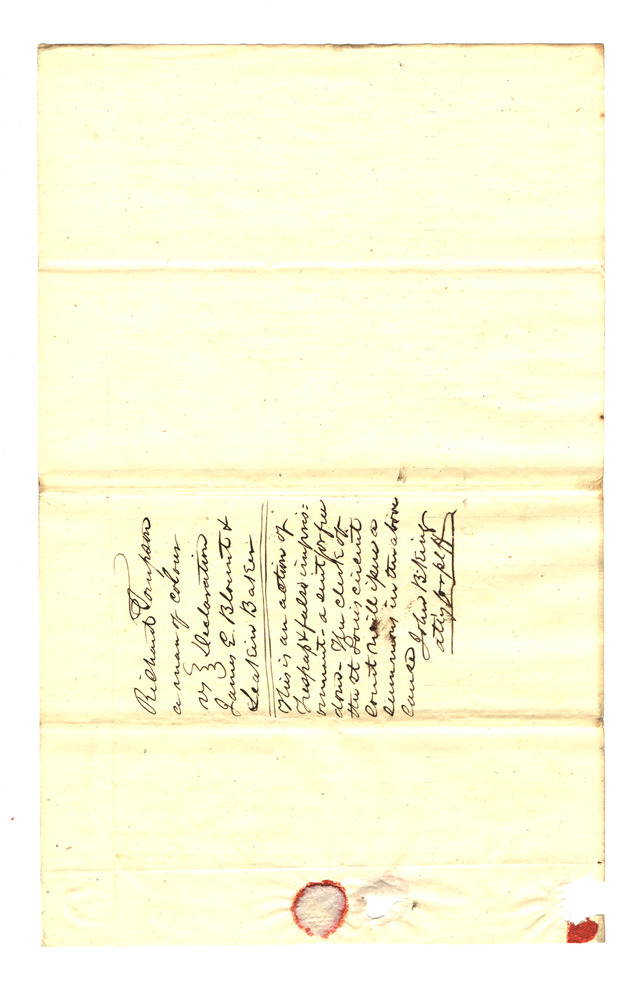 Richard Thompson
a man of colour
vs } Declaration
James E. Blount &
Leakin Baker
This is an action of
Trespass & false impris=
onment - a suit for free
dom - The clerk of
the St Louis circuit
Court will issue a
summons in the above
cause
John B King
atty for plff